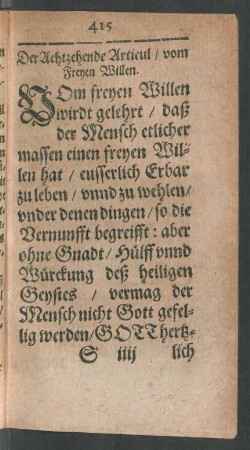 415
Der Achtzehende Articul / vom
Freyen Willen.
VOm freyen Willen
wirdt gelehrt / daß
der Mensch etlicher
massen einen freyen Wil-
len hat / eusserlich Erbar
zu leben / vnnd zu wehlen /
vnder denen dingen / so die
Vernunfft begreifft: aber
ohne Gnadt / Hülff vnnd
Würckung deß heiligen
Geystes / vermag der
Mensch nicht Gott gefel-
lig werden / GOTT hertz-
S iiij lich